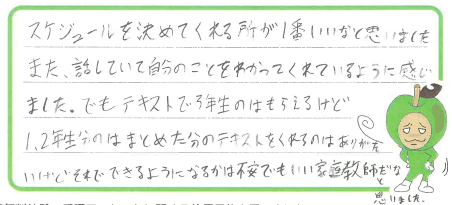 スケジュールを決めてくれる所が1番いいなと思いました
また、話していて自分のことをわかってくれているように感じ
ました。でもテキストで3年生のはもらえるけど
1、2年生分のはまとめた分のテキストをくれるのはありがた
いけどそれでできるようになるかは不安でもいい家庭教師だな
と
思いました。